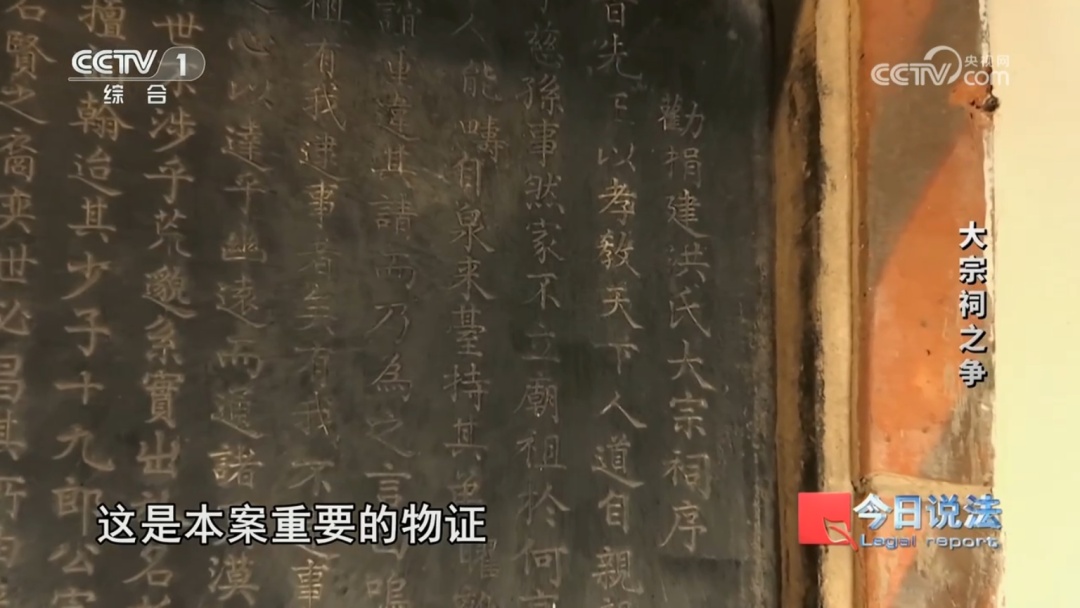 CCTV 1
综合
央视网
CCTV com
大宗祠之争
勸捐建洪氏大宗祠序
昔先王以孝教天下人道自親
慈孫事然家不立廟祖於何
人能疇自泉來基持其
請重違其請而乃為之言曰嗚
有我建事者矣有我不事
心以達乎幽遠而邈諸漠
世涉乎荒邈系實出名
擅翰迨其少子十九郎公
名賢之裔奕世必昌其所
这是本案重要的物证
今日说法
Legal report